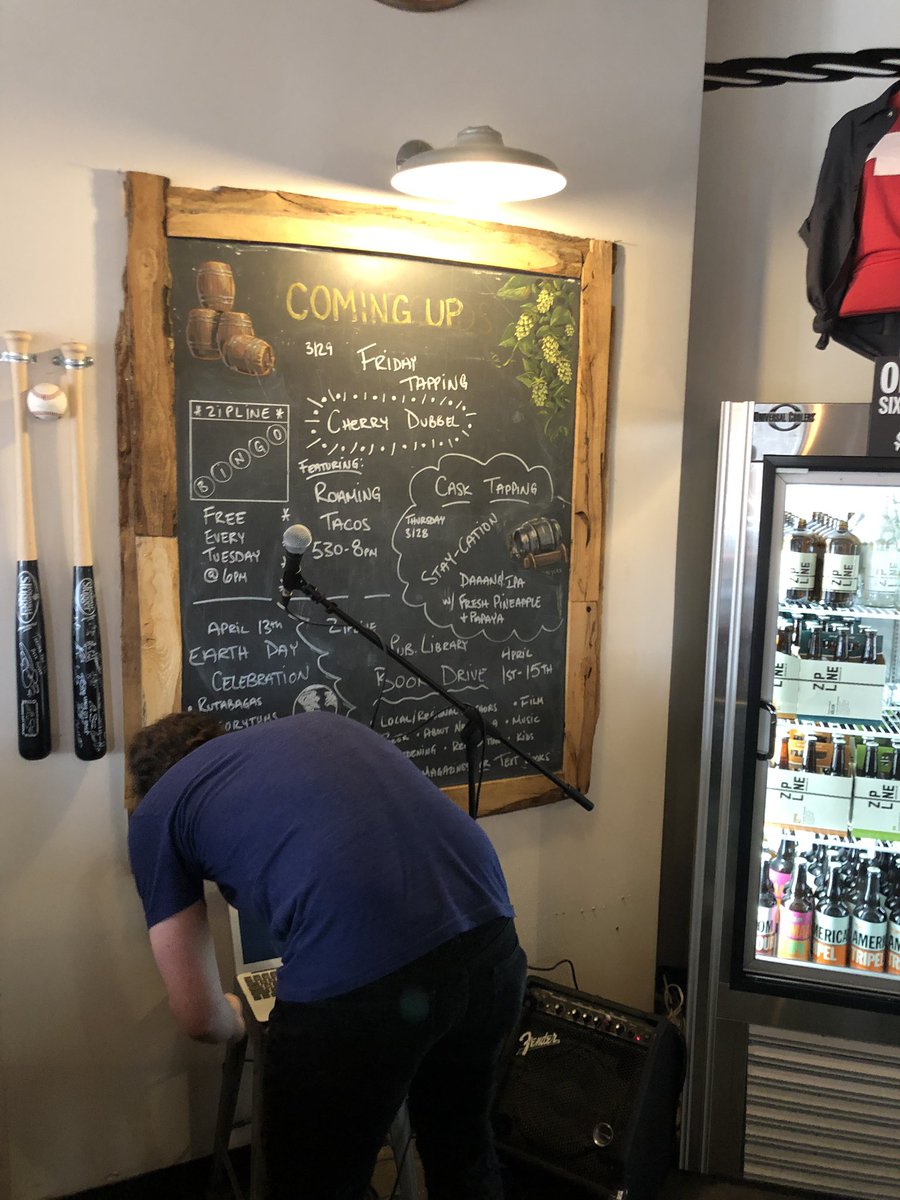 COMING UP
3/29
FRIDAY
TAPPING
CHERRY DUBBEL
FEATURING:
ROAMING
TACOS
530-8PM
* ZIPLINE *
BINGO
FREE
EVERY
TUESDAY
@ 6PM
CASK TAPPING
THURSDAY
3/28
STAY-CATION
DAAANG IPA
W/ FRESH PINEAPPLE
+ PAPAYA
APRIL 13TH
EARTH DAY
CELEBRATION
• RUTABAGAS
ZIPLINE
PUB. LIBRARY
BOOK DRIVE
APRIL
1ST-15TH
LOCAL/REGIONAL
• FILM
• ABOUT
• MUSIC
• KIDS
MAGAZINES OR TEXT BOOKS
Fender
UNIVERSAL COOLERS
SIX
ZIP
LINE
ZIP
LINE
ZIP
LINE
ZIP
LINE
AMERICA
TRIPEL